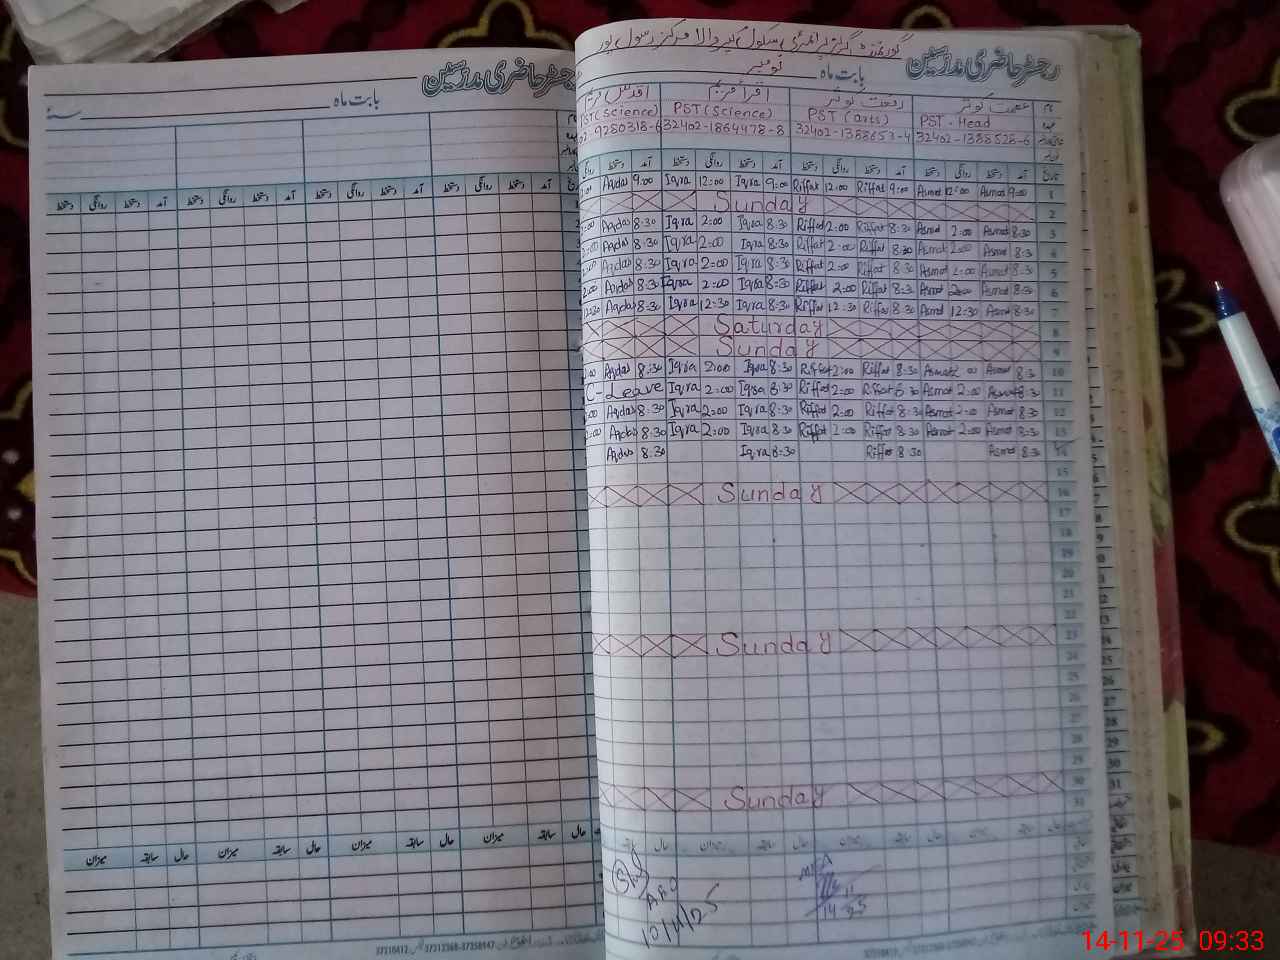 گورنمنٹ گرلز پرائمری سکول پیر والا مرکز رسول پور
رجسٹر حاضری مدرسین
بابت ماہ نومبر
نام عصمت کوثر رفعت کوثر اقرا مریم
عہدہ PST - Head PST (arts) PST (Science) PST (Science)
32402-1388528-6 32402-1388653-4 32402-1864478-8 02-9280318-6
تاریخ آمد دستخط روانگی دستخط آمد دستخط روانگی دستخط آمد دستخط روانگی دستخط آمد دستخط
1 9:00 Asmat 12:00 Asmat 9:00 Riffat 12:00 Riffat 9:00 Iqra 12:00 Iqra 9:00 Aqdas
2 Sunday
3 8:30 Asmat 2:00 Asmat 8:30 Riffat 2:00 Riffat 8:30 Iqra 2:00 Iqra 8:30 Aqdas
4 8:3 Asmat 2:00 Asmat 8:30 Riffat 2:00 Riffat 8:30 Iqra 2:00 Iqra 8:30 Aqdas
5 8:30 Asmat 2:00 Asmat 8:30 Riffat 2:00 Riffat 8:30 Iqra 2:00 Iqra 8:30 Aqdas
6 8:30 Asmat 2:00 Asmat 8:3 Riffat 2:00 Riffat 8:30 Iqra 2:00 Iqra 8:30 Aqdas
7 8:30 Asmat 12:30 Asmat 8:30 Riffat 12:30 Riffat 8:30 Iqra 12:30 Iqra 8:30 Aqdas
8 Saturday
9 Sunday
10 8:30 Asmat 2:00 Asmat 8:30 Riffat 2:00 Riffat 8:30 Iqra 2:00 Iqra 8:30 Aqdas
11 8:30 Asmat 2:00 Asmat 8:30 Riffat 2:00 Riffat 8:30 Iqra 2:00 Iqra C-Leave
12 8:30 Asmat 2:00 Asmat 8:30 Riffat 2:00 Riffat 8:30 Iqra 2:00 Iqra 8:30 Aqdas
13 8:30 Asmat 2:00 Asmat 8:30 Riffat 2:00 Riffat 8:30 Iqra 2:00 Iqra 8:30 Aqdas
14 8:30 Asmat 8:30 Riffat 8:30 Iqra 8:30 Aqdas
15
16 Sunday
17
18
19
20
21
22
23 Sunday
24
25
26
27
28
29
30 Sunday
31
AEO
10/11/25
MEA
14 11 25
رجسٹر حاضری مدرسین
بابت ماہ
آمد دستخط روانگی دستخط آمد دستخط روانگی دستخط آمد دستخط روانگی دستخط آمد دستخط روانگی دستخط
حال سابقہ میزان حال سابقہ میزان حال سابقہ میزان حال سابقہ میزان
14-11-25 09:33